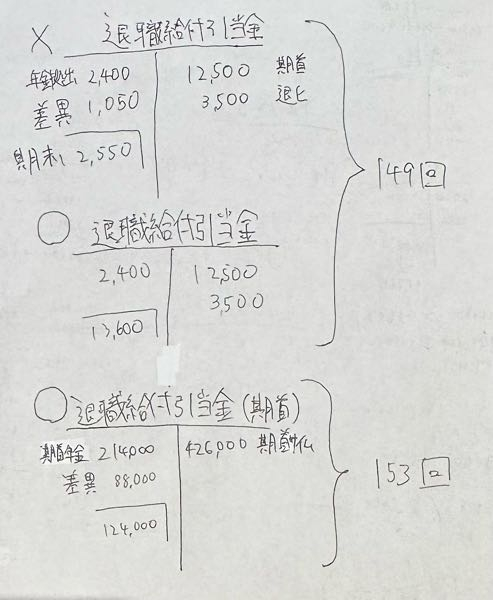 × 退職給付引当金
年金拠出 2,400 12,500 期首
差異 1,050 3,500 退ヒ
期末 2,550
149回
○ 退職給付引当金
2,400 12,500
3,500
13,600
○ 退職給付引当金(期首)
期首年金 214,000 426,000 期首
差異 88,000
153回
124,000